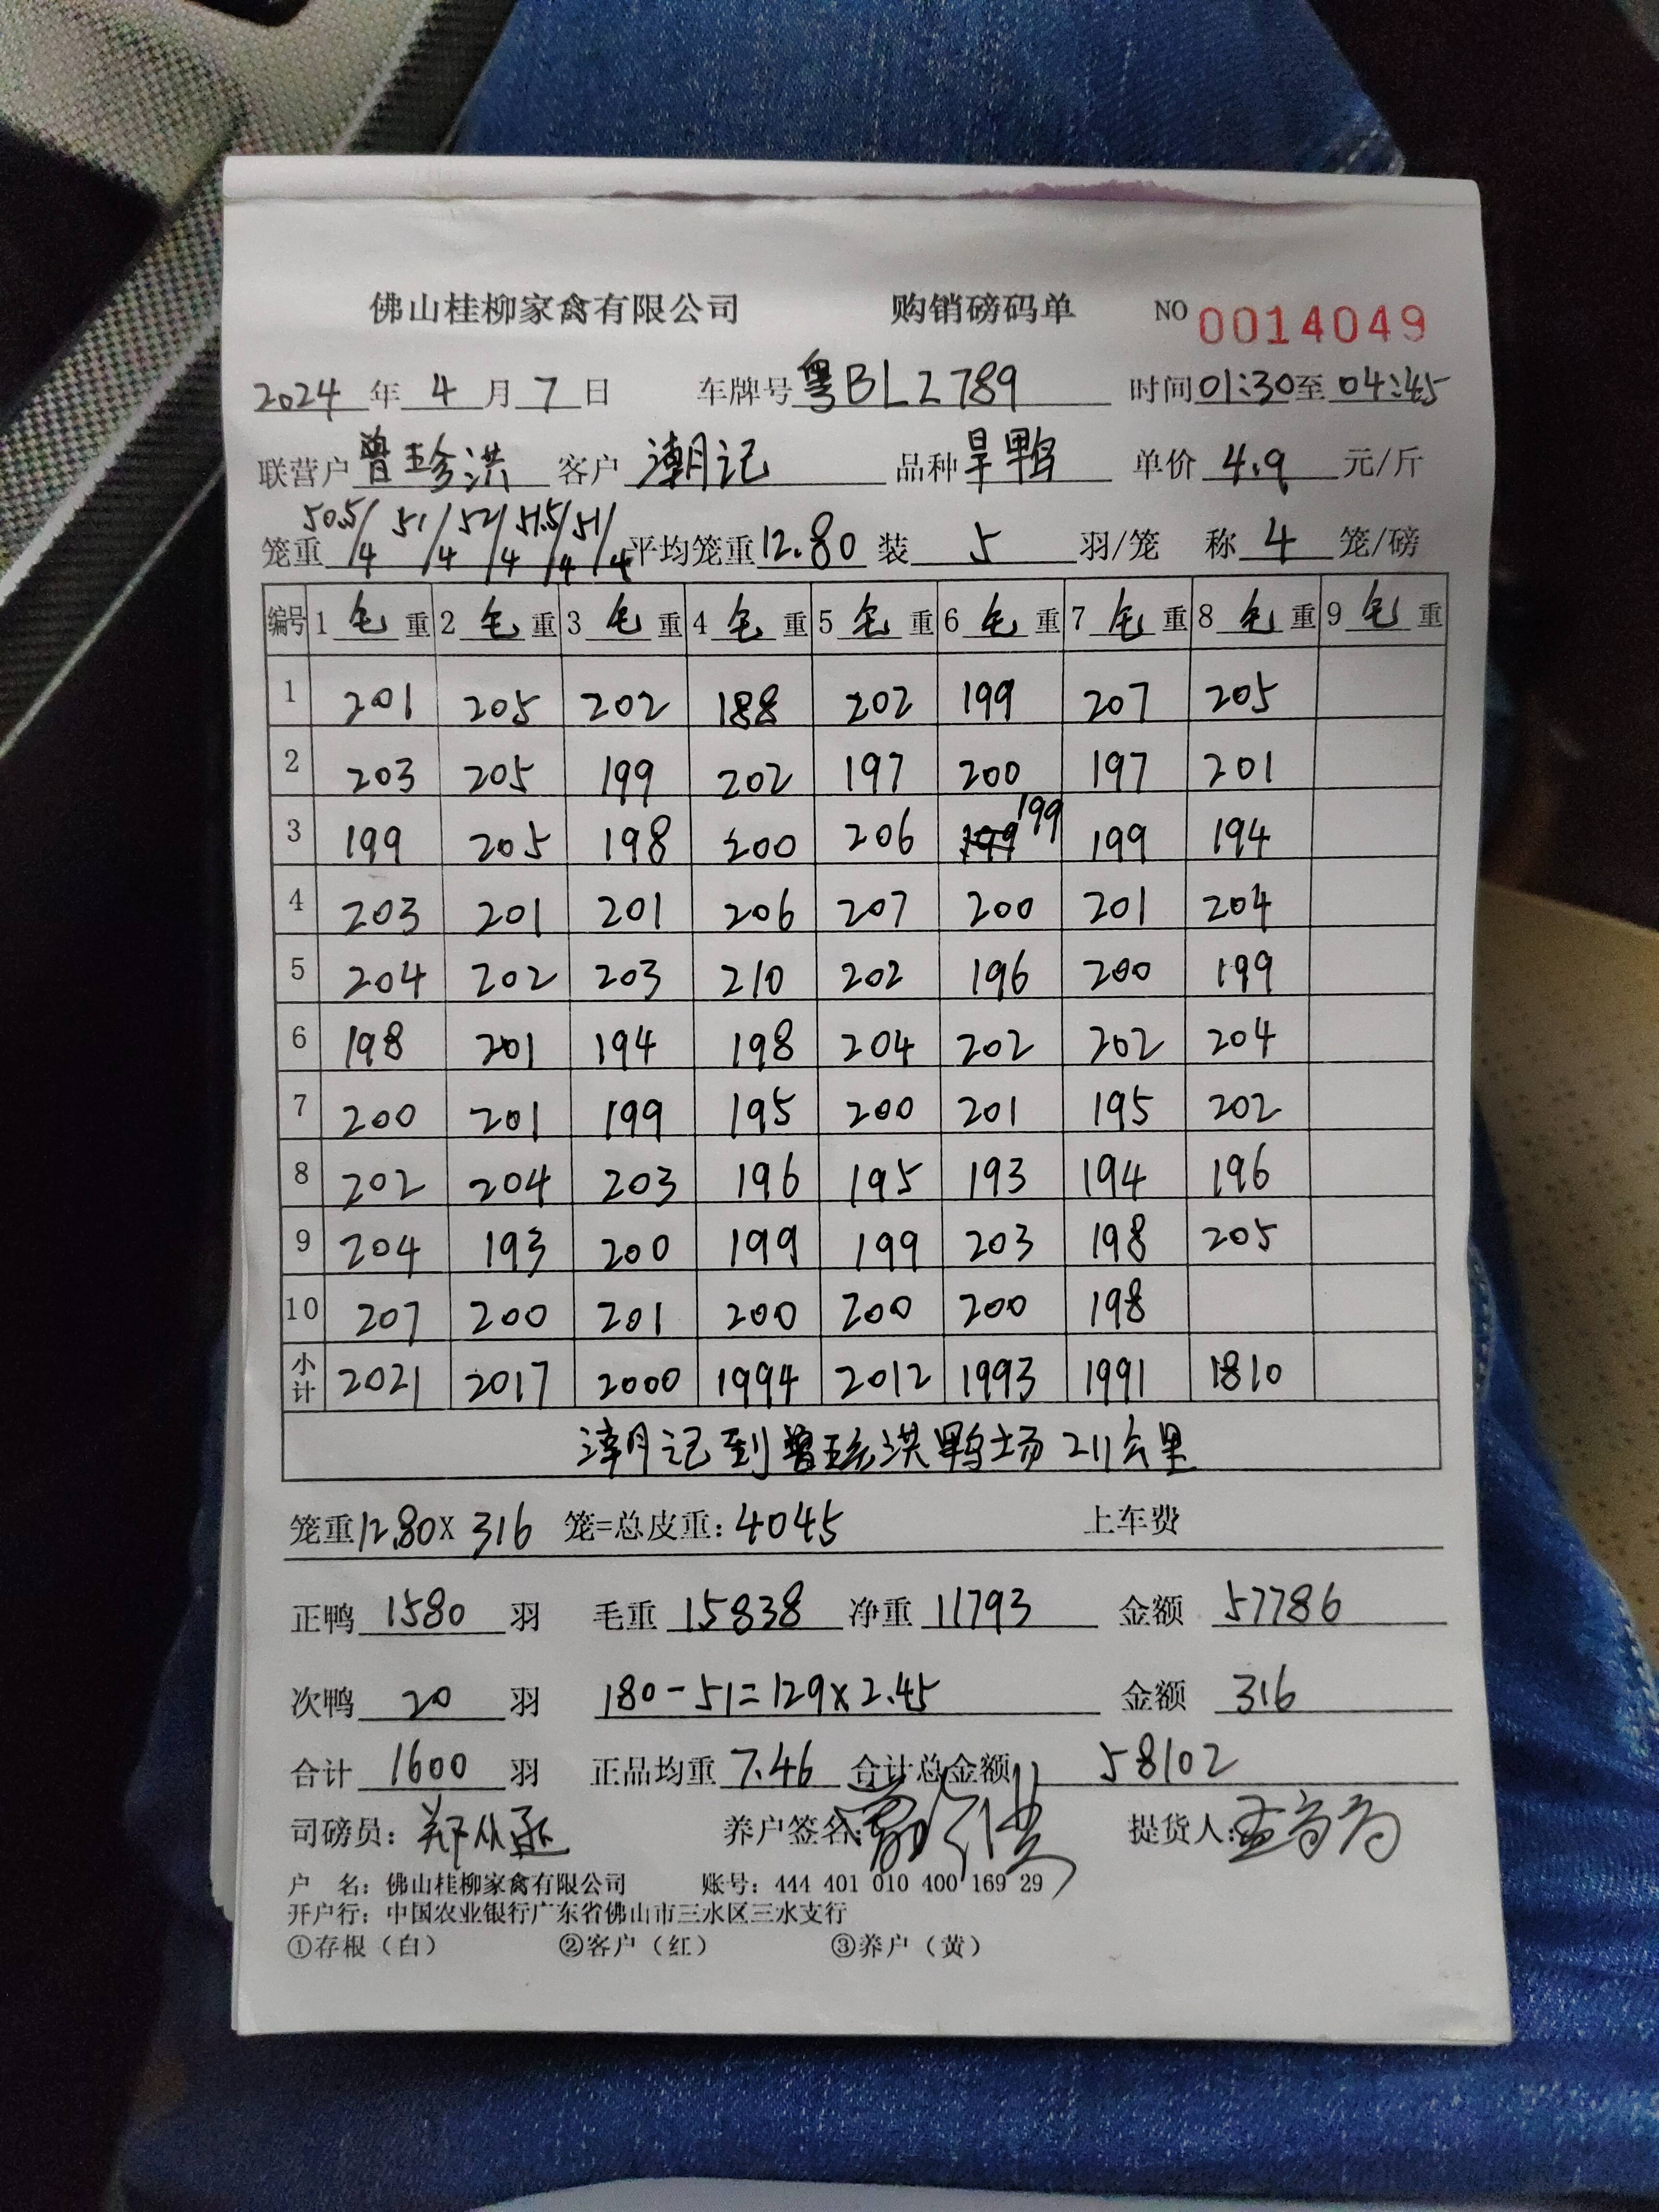 佛山桂柳家禽有限公司 购销磅码单 NO 0014049
2024年4月7日 车牌号粤BLZ789 时间01:30至04:45
联营户曾珍洪 客户潮记 品种旱鸭 单价4.9元/斤
笼重50.5/4 51/4 52/4 51.5/4 51/4 平均笼重12.80 装5羽/笼 称4笼/磅
编号 1毛重 2毛重 3毛重 4毛重 5毛重 6毛重 7毛重 8毛重 9毛重
1 201 205 202 188 202 199 207 205
2 203 205 199 202 197 200 197 201
3 199 205 198 200 206 199 199 194
4 203 201 201 206 207 200 201 204
5 204 202 203 210 202 196 200 199
6 198 201 194 198 204 202 202 204
7 200 201 199 195 200 201 195 202
8 202 204 203 196 195 193 194 196
9 204 193 200 199 199 203 198 205
10 207 200 201 200 200 200 198
小计 2021 2017 2000 1994 2012 1993 1991 1810
潮记到曾珍洪鸭场211公里
笼重12.80X 316 笼=总皮重:4045 上车费
正鸭1580羽 毛重15838 净重11793 金额57786
次鸭20羽 180-51=129×2.45 金额316
合计1600羽 正品均重7.46 合计总金额58102
司磅员: 养户签名: 提货人:
户 名:佛山桂柳家禽有限公司 账号:444 401 010 400 169 29
开户行:中国农业银行广东省佛山市三水区三水支行
①存根(白) ②客户(红) ③养户(黄)